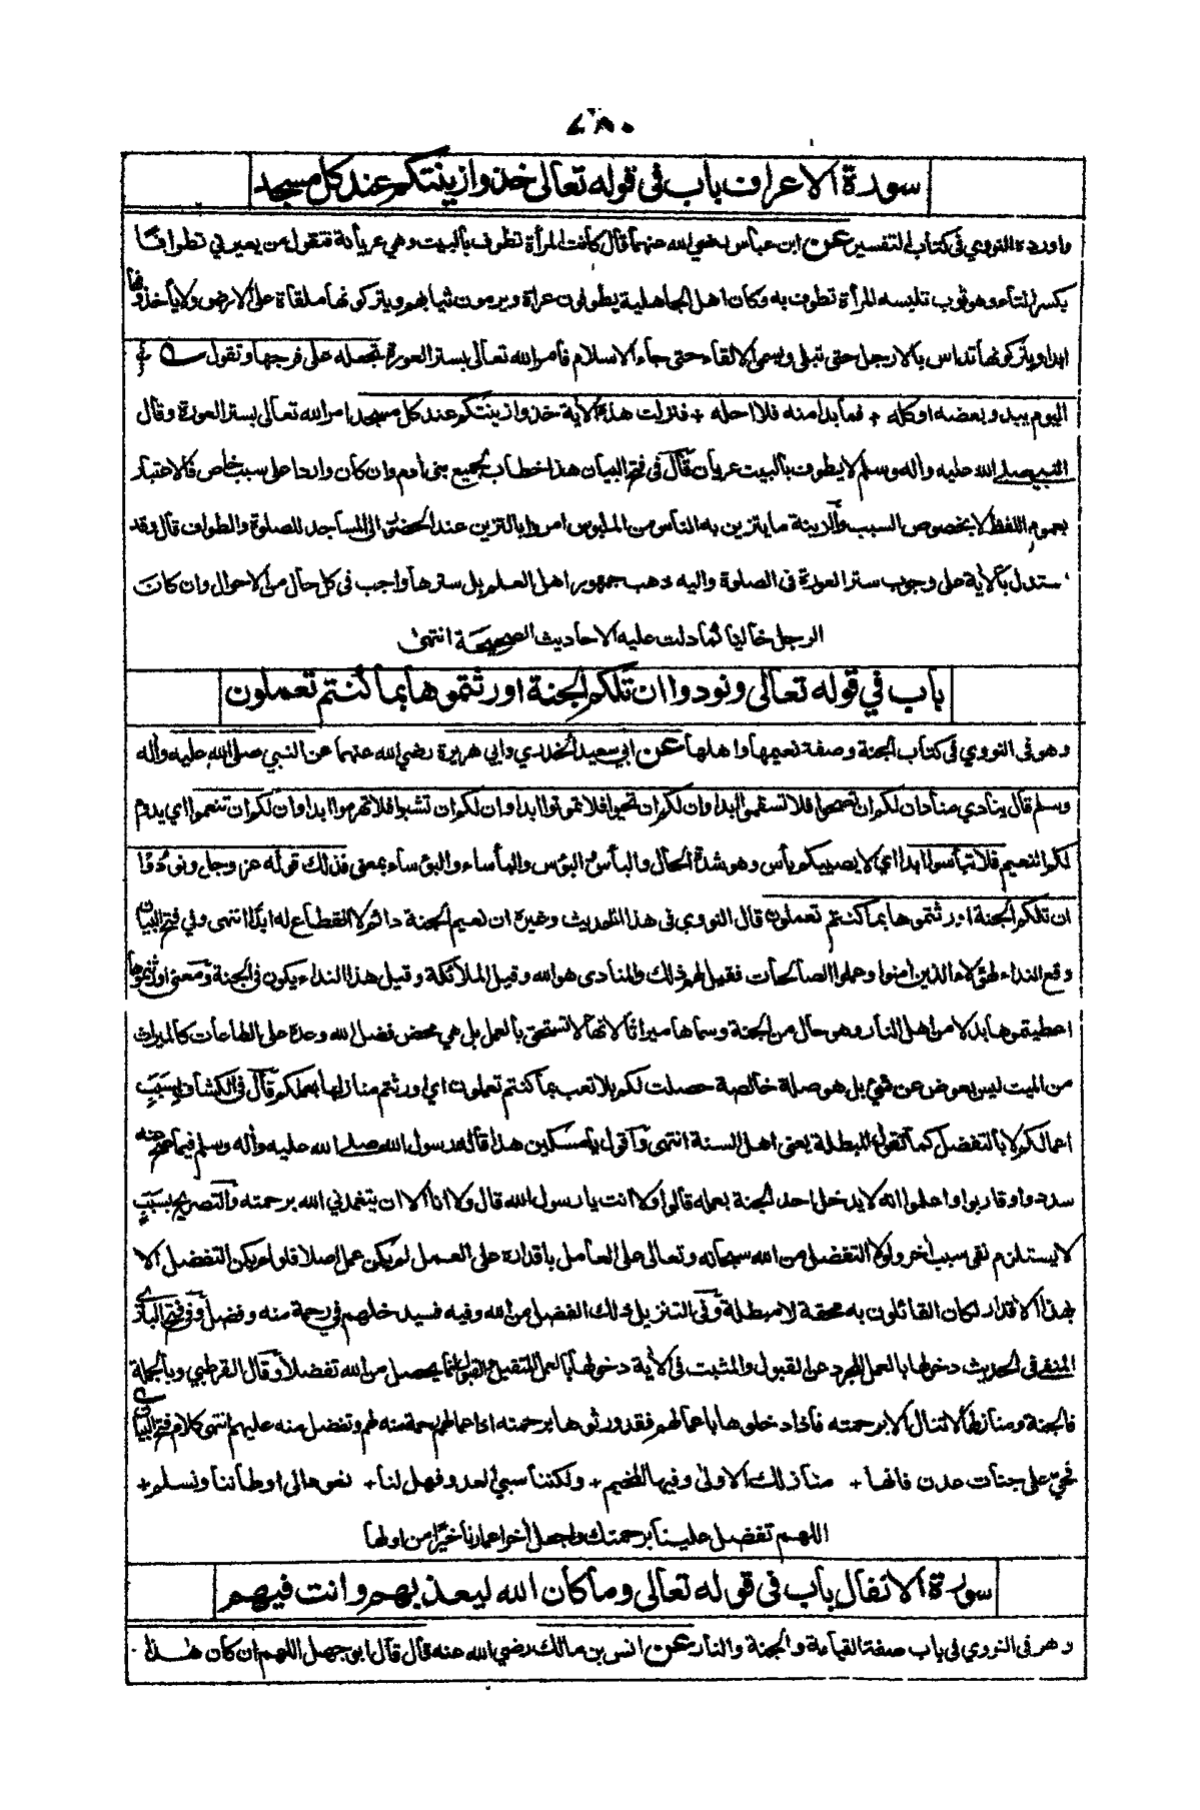 سورة الاعراف باب في قوله تعالى خذوا زينتكم عند كل مسجد
واورده النووي في كتاب التفسير عن ابن عباس رضي الله عنهما قال كانت المرأة تطوف بالبيت وهي عريانة فتقول من يعيرني تطوافا
بكسر التاء وهو ثوب تلبسه المرأة تطوف به وكان اهل الجاهلية يطوفون عراة ويرمون ثيابهم ويتركونها ملقاة على الارض ولا يأخذونها
ابدا ويتركونها تداس بالارجل حتى تبلى ويسمى الالقاء حتى جاء الاسلام فأمر الله تعالى بستر العورة تجعله على فرجها وتقول
اليوم يبدو بعضه او كله + فما بدا منه فلا احله + فنزلت هذه الآية خذوا زينتكم عند كل مسجد امر الله تعالى بستر العورة وقال
النبي صلى الله عليه وآله وسلم لا يطوف بالبيت عريان قال في فتح البيان هذا خطاب لجميع بني آدم وان كان واردا على سبب خاص فالاعتبار
بعموم اللفظ لا بخصوص السبب والزينة ما يتزين به الناس من الملبوس امروا بالتزين عند الحضور الى المساجد للصلوة والطواف قال وقد
ستدل بالآية على وجوب ستر العورة في الصلوة واليه ذهب جمهور اهل العلم بل سترها واجب في كل حال من الاحوال وان كان
الرجل خاليا كما دلت عليه الاحاديث الصحيحة انتهى
باب في قوله تعالى ونودوا ان تلكم الجنة اورثتموها بما كنتم تعملون
وهو في النووي في كتاب الجنة وصفة نعيمها واهلها عن ابي سعيد الخدري وابي هريرة رضي الله عنهما عن النبي صلى الله عليه وآله
وسلم قال ينادي مناد ان لكم ان تصحوا فلا تسقموا ابدا وان لكم ان تحيوا فلا تموتوا ابدا وان لكم ان تشبوا فلا تهرموا ابدا وان لكم ان تنعموا اي يدوم
لكم النعيم فلا تبأسوا ابدا اي لا يصيبكم بأس وهو شدة الحال والبأس والبؤس والبأساء والبؤساء بمعنى فذلك قوله عز وجل ونودوا
ان تلكم الجنة اورثتموها بما كنتم تعملون قال النووي في هذا الحديث وغيره ان نعيم الجنة دائم لا انقطاع له ابدا انتهى وفي فتح البيان
وقع النداء لهؤلاء الذين آمنوا وعملوا الصالحات فقيل لهم ذلك والمنادى هو الله وقيل الملائكة وقيل هذا النداء يكون في الجنة ومعنى اورثتموها
اعطيتموها بدلا من اهل النار وهو حال من الجنة وسماها ميراثا لانها لا تستحق بالعمل بل هي محض فضل الله وعده على الطاعات كالميراث
من الميت ليس بعوض عن شيء بل هو صلة خالصة حصلت لكم بلا تعب بما كنتم تعملون اي اورثتم منازلها بعملكم قال في الكشاف بسبب
اعمالكم لا بالتفضل كما تقول المبطلة يعني اهل السنة انتهى واقول يا مسكين هذا قاله رسول الله صلى الله عليه وآله وسلم فيما صح عنه
سددوا وقاربوا واعلموا انه لا يدخل احد الجنة بعمله قالوا ولا انت يا رسول الله قال ولا انا الا ان يتغمدني الله برحمته والتصريح بسبب
لا يستلزم نفي سبب آخر ولولا التفضل من الله سبحانه وتعالى على العامل باقداره على العمل لم يكن عمل اصلا فلو لم يكن التفضل الا
بهذا الاقدار لكان القائلون به محقة لا مبطلة وفي التنزيل ذلك الفضل من الله وفيه فسيدخلهم في رحمة منه وفضل وفي فتح الباري
المنفي في الحديث دخولها بالعمل المجرد عن القبول والمثبت في الآية دخولها بالعمل المتقبل والقبول انما يحصل من الله تفضلا وقال القرطبي وبالجملة
فالجنة ومنازلها لا تنال الا برحمته فاذا دخلوها باعمالهم فقد ورثوها برحمته اذ اعمالهم رحمة منه لهم وتفضل منه عليهم انتهى كلام فتح البيان
فحي على جنات عدن فانها + منازلك الاولى وفيها المخيم + ولكننا سبي العدو فهل لنا + نعود الى اوطاننا ونسلم +
اللهم تفضل علينا برحمتك واجعل آخر اعمارنا خيرا من اولها
سورة الانفال باب في قوله تعالى وما كان الله ليعذبهم وانت فيهم
وهو في النووي في باب صفة القيامة والجنة والنار عن انس بن مالك رضي الله عنه قال قال ابو جهل اللهم ان كان هذا